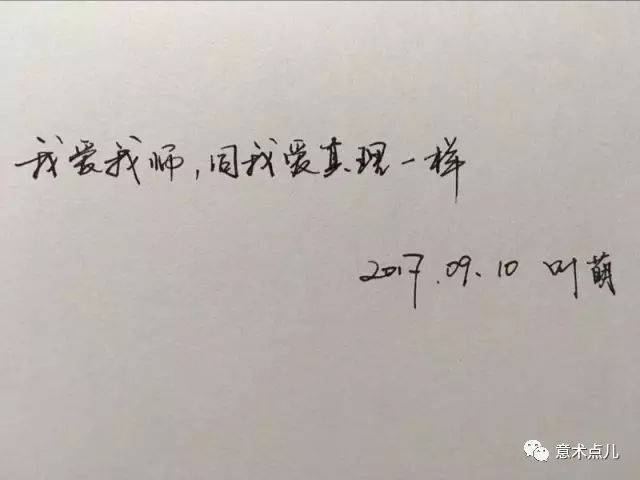 我爱我师,同我爱真理一样
2017.09.10 叶萌
意术点儿